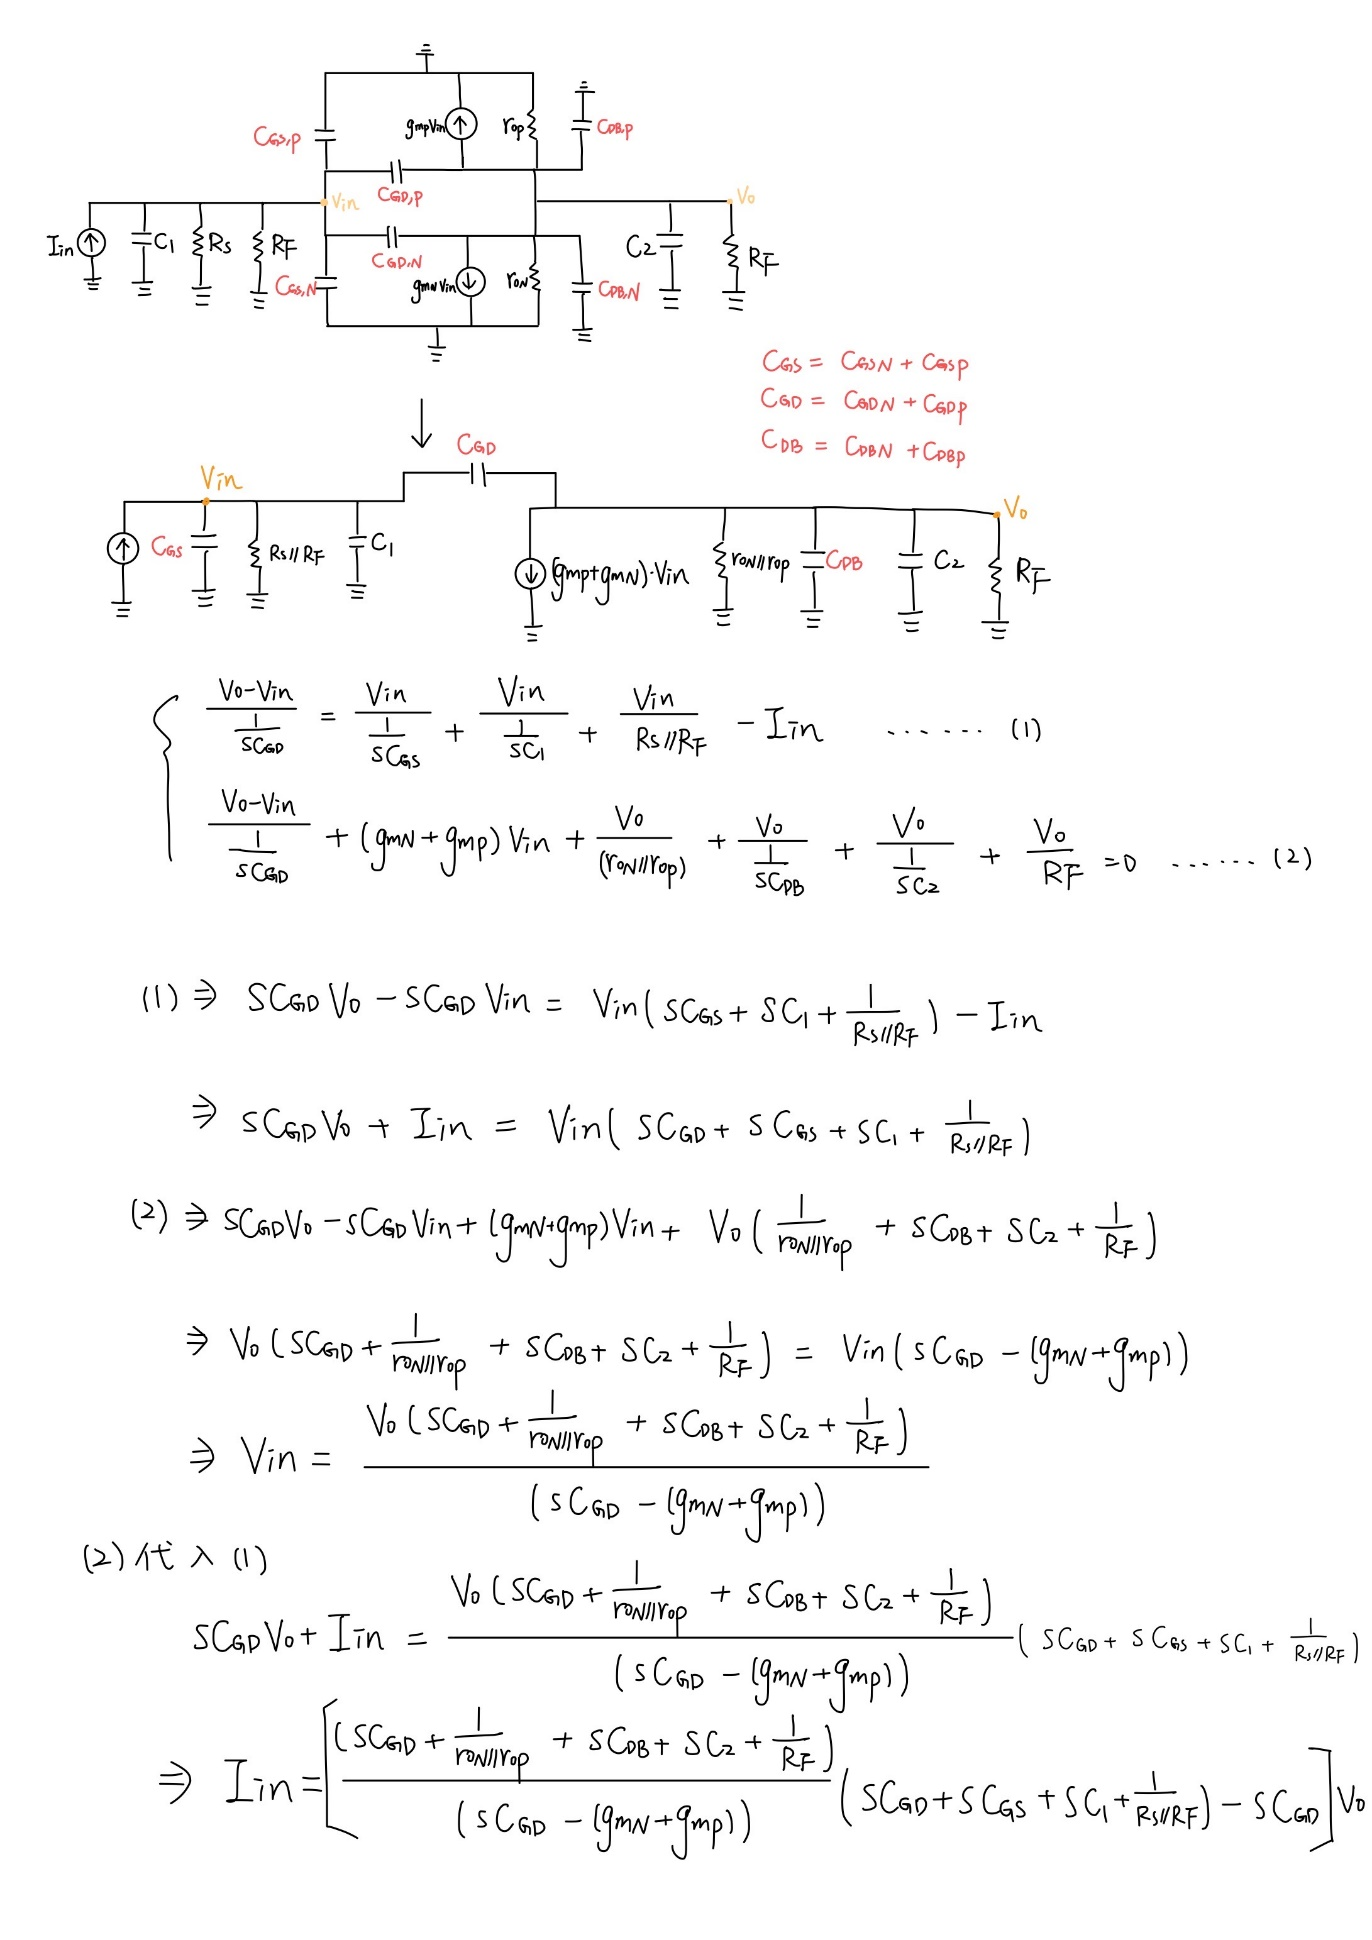 gmpVin rop CDB,P
CGS,P
CGD,P
Vin Vo
Iin C1 RS RF C2 RF
CGD,N
CGS,N gmNVin roN CDB,N
CGS = CGSN + CGSP
CGD = CGDN + CGDP
CDB = CDBN + CDBP
↓
CGD
Vin Vo
CGS RS//RF C1 (gmp+gmN)·Vin roN//rop CDB C2 RF
{ (Vo-Vin)/(1/SCGD) = Vin/(1/SCGS) + Vin/(1/SC1) + Vin/(RS//RF) - Iin ...... (1)
(Vo-Vin)/(1/SCGD) + (gmN+gmp)Vin + Vo/(roN//rop) + Vo/(1/SCDB) + Vo/(1/SC2) + Vo/RF =0 ...... (2)
(1) ⇒ SCGD Vo - SCGD Vin = Vin( SCGS + SC1 + 1/(RS//RF) ) - Iin
⇒ SCGD Vo + Iin = Vin( SCGD + SCGS + SC1 + 1/(RS//RF) )
(2) ⇒ SCGDVo - SCGDVin + (gmN+gmp)Vin + Vo ( 1/(roN//rop) + SCDB + SC2 + 1/RF )
⇒ Vo (SCGD + 1/(roN//rop) + SCDB + SC2 + 1/RF ) = Vin( SCGD - (gmN+gmp))
⇒ Vin = Vo (SCGD + 1/(roN//rop) + SCDB + SC2 + 1/RF ) / (SCGD - (gmN+gmp))
(2) 代入 (1)
SCGD Vo + Iin = Vo (SCGD + 1/(roN//rop) + SCDB + SC2 + 1/RF ) / (SCGD - (gmN+gmp)) ( SCGD + SCGS + SC1 + 1/(RS//RF) )
⇒ Iin = [ (SCGD + 1/(roN//rop) + SCDB + SC2 + 1/RF ) / (SCGD - (gmN+gmp)) ( SCGD + SCGS + SC1 + 1/(RS//RF) ) - SCGD ] Vo